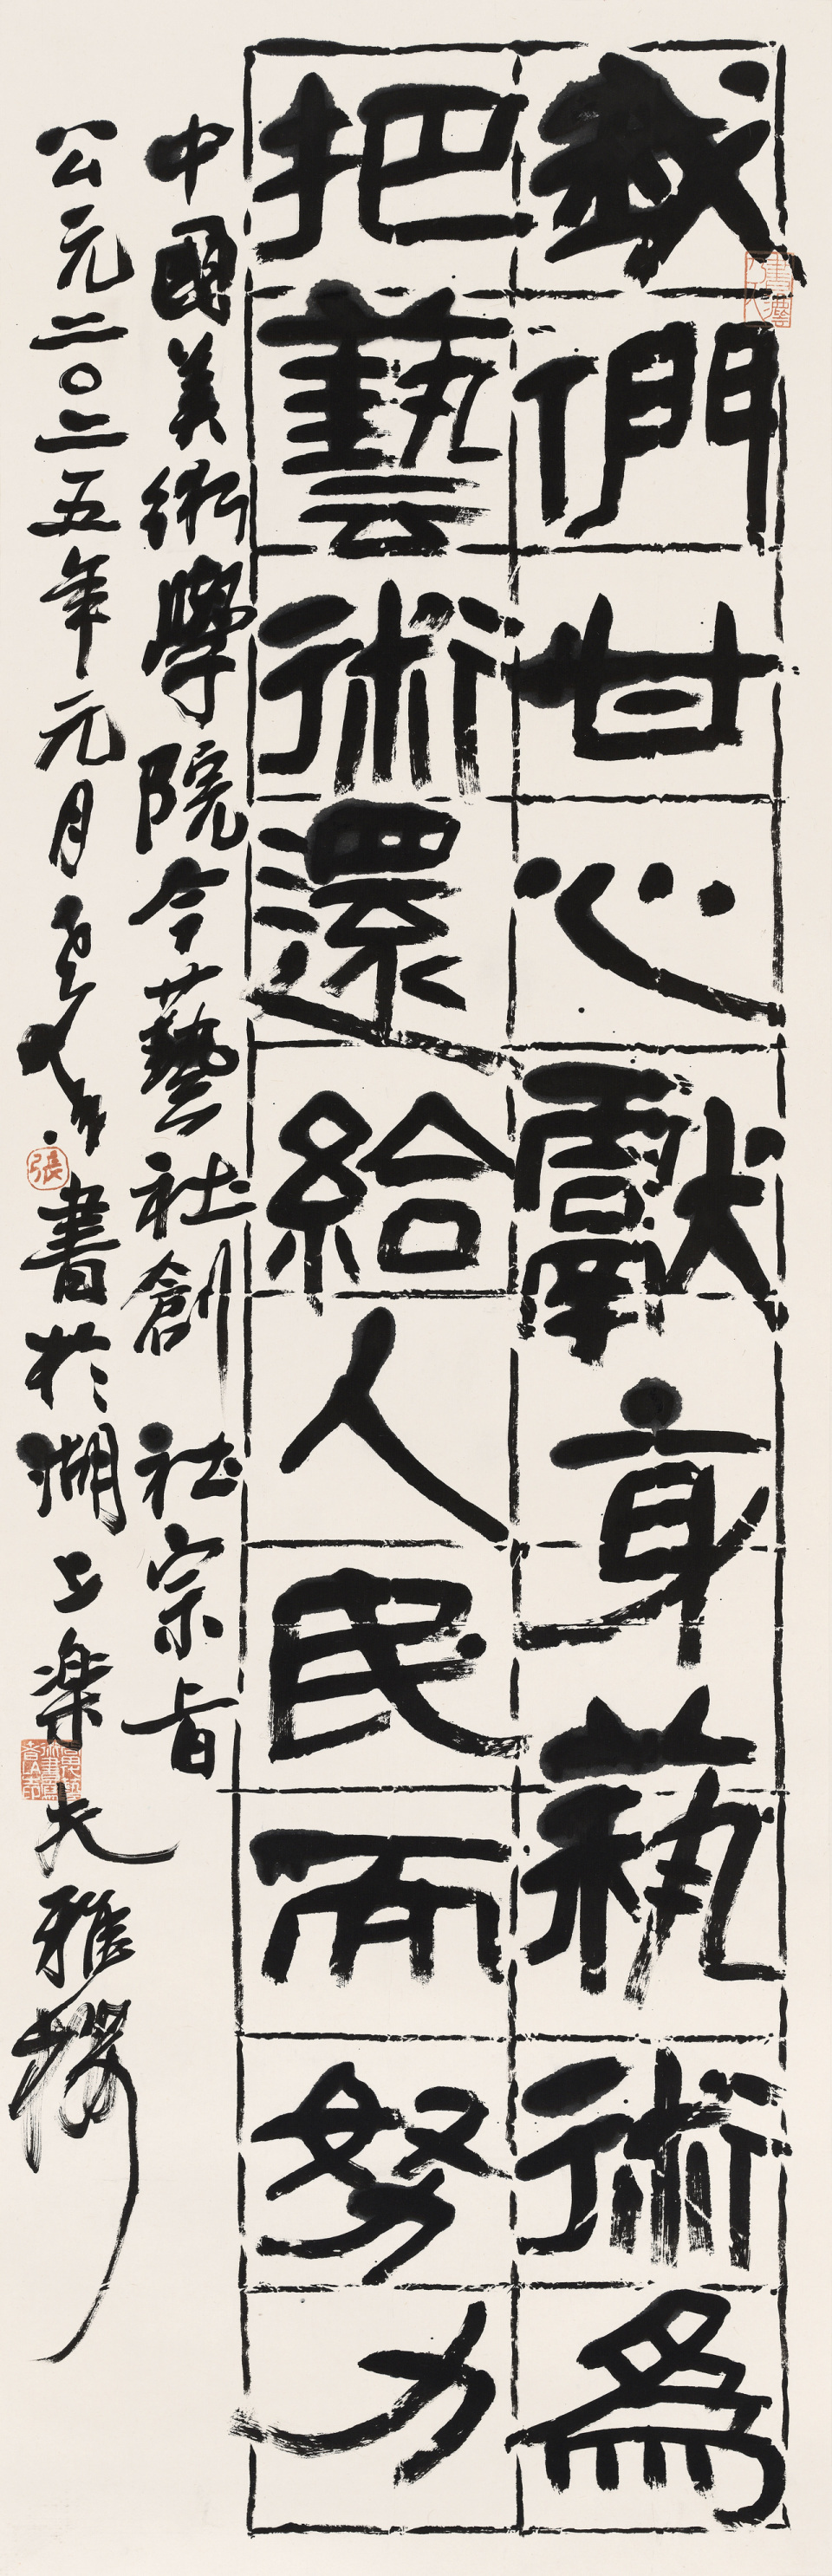 我們甘心獻身蓺術爲
把藝術還給人民而努力
中國美術學院今藝社創社宗旨
公元二〇二五年元月 書於湖上楽大雅樓
張